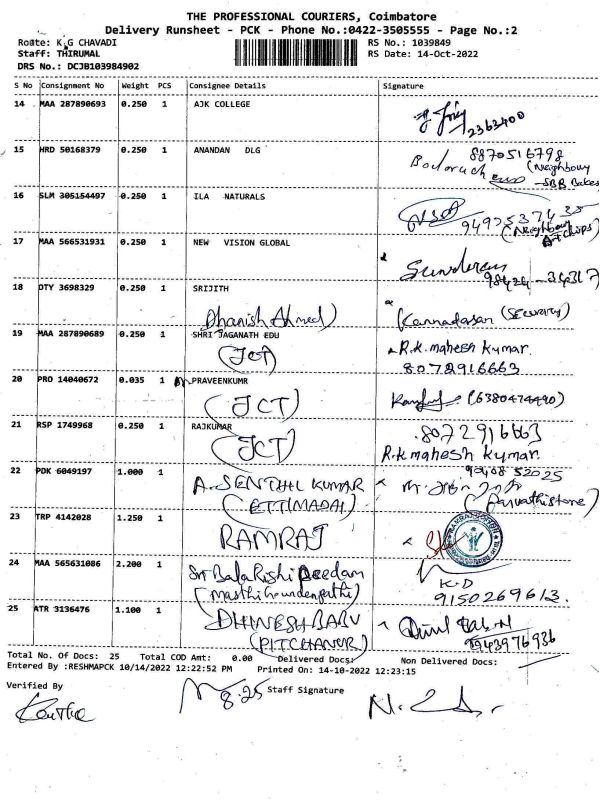 THE PROFESSIONAL COURIERS, Coimbatore
Delivery Runsheet - PCK - Phone No.:0422-3505555 - Page No.:2
Route: K G CHAVADI RS No.: 1039849
Staff: THIRUMAL RS Date: 14-Oct-2022
DRS No.: DCJB103984902
S No Consignment No Weight PCS Consignee Details Signature
14 MAA 287890693 0.250 1 AJK COLLEGE
2363400
15 HRD 50168379 0.250 1 ANANDAN DLG 8870516798
(Neighbour
SBB Bakes
16 SLM 305154497 0.250 1 ILA NATURALS
(Neighbour
17 MAA 566531931 0.250 1 NEW VISION GLOBAL
Sunderan
98424 - 34317
18 DTY 3698329 0.250 1 SRIJITH
(Dhanish Ahmed) Kannadasan (Security)
19 MAA 287890689 0.250 1 SHRI JAGANATH EDU
(JCT) R.k. mahesh kumar.
8072916663
20 PRO 14040672 0.035 1 M PRAVEENKUMR
(JCT) (6380474490)
21 RSP 1749968 0.250 1 RAJKUMAR 8072916663
(JCT) R.k mahesh kumar.
22 PDK 6049197 1.000 1 A. SENTHIL KUMAR
(ETTIMADAI)
23 TRP 4142028 1.250 1 RAMRAJ
24 MAA 565631086 2.200 1 Sri Bala Rishi Peedam K.D
9150269613.
25 ATR 3136476 1.100 1 DHINESH BABU
(PITCHANUR) 9943976936
Total No. Of Docs: 25 Total COD Amt: 0.00 Delivered Docs: Non Delivered Docs:
Entered By :RESHMAPCK 10/14/2022 12:22:52 PM Printed On: 14-10-2022 12:23:15
Verified By 8.25 Staff Signature